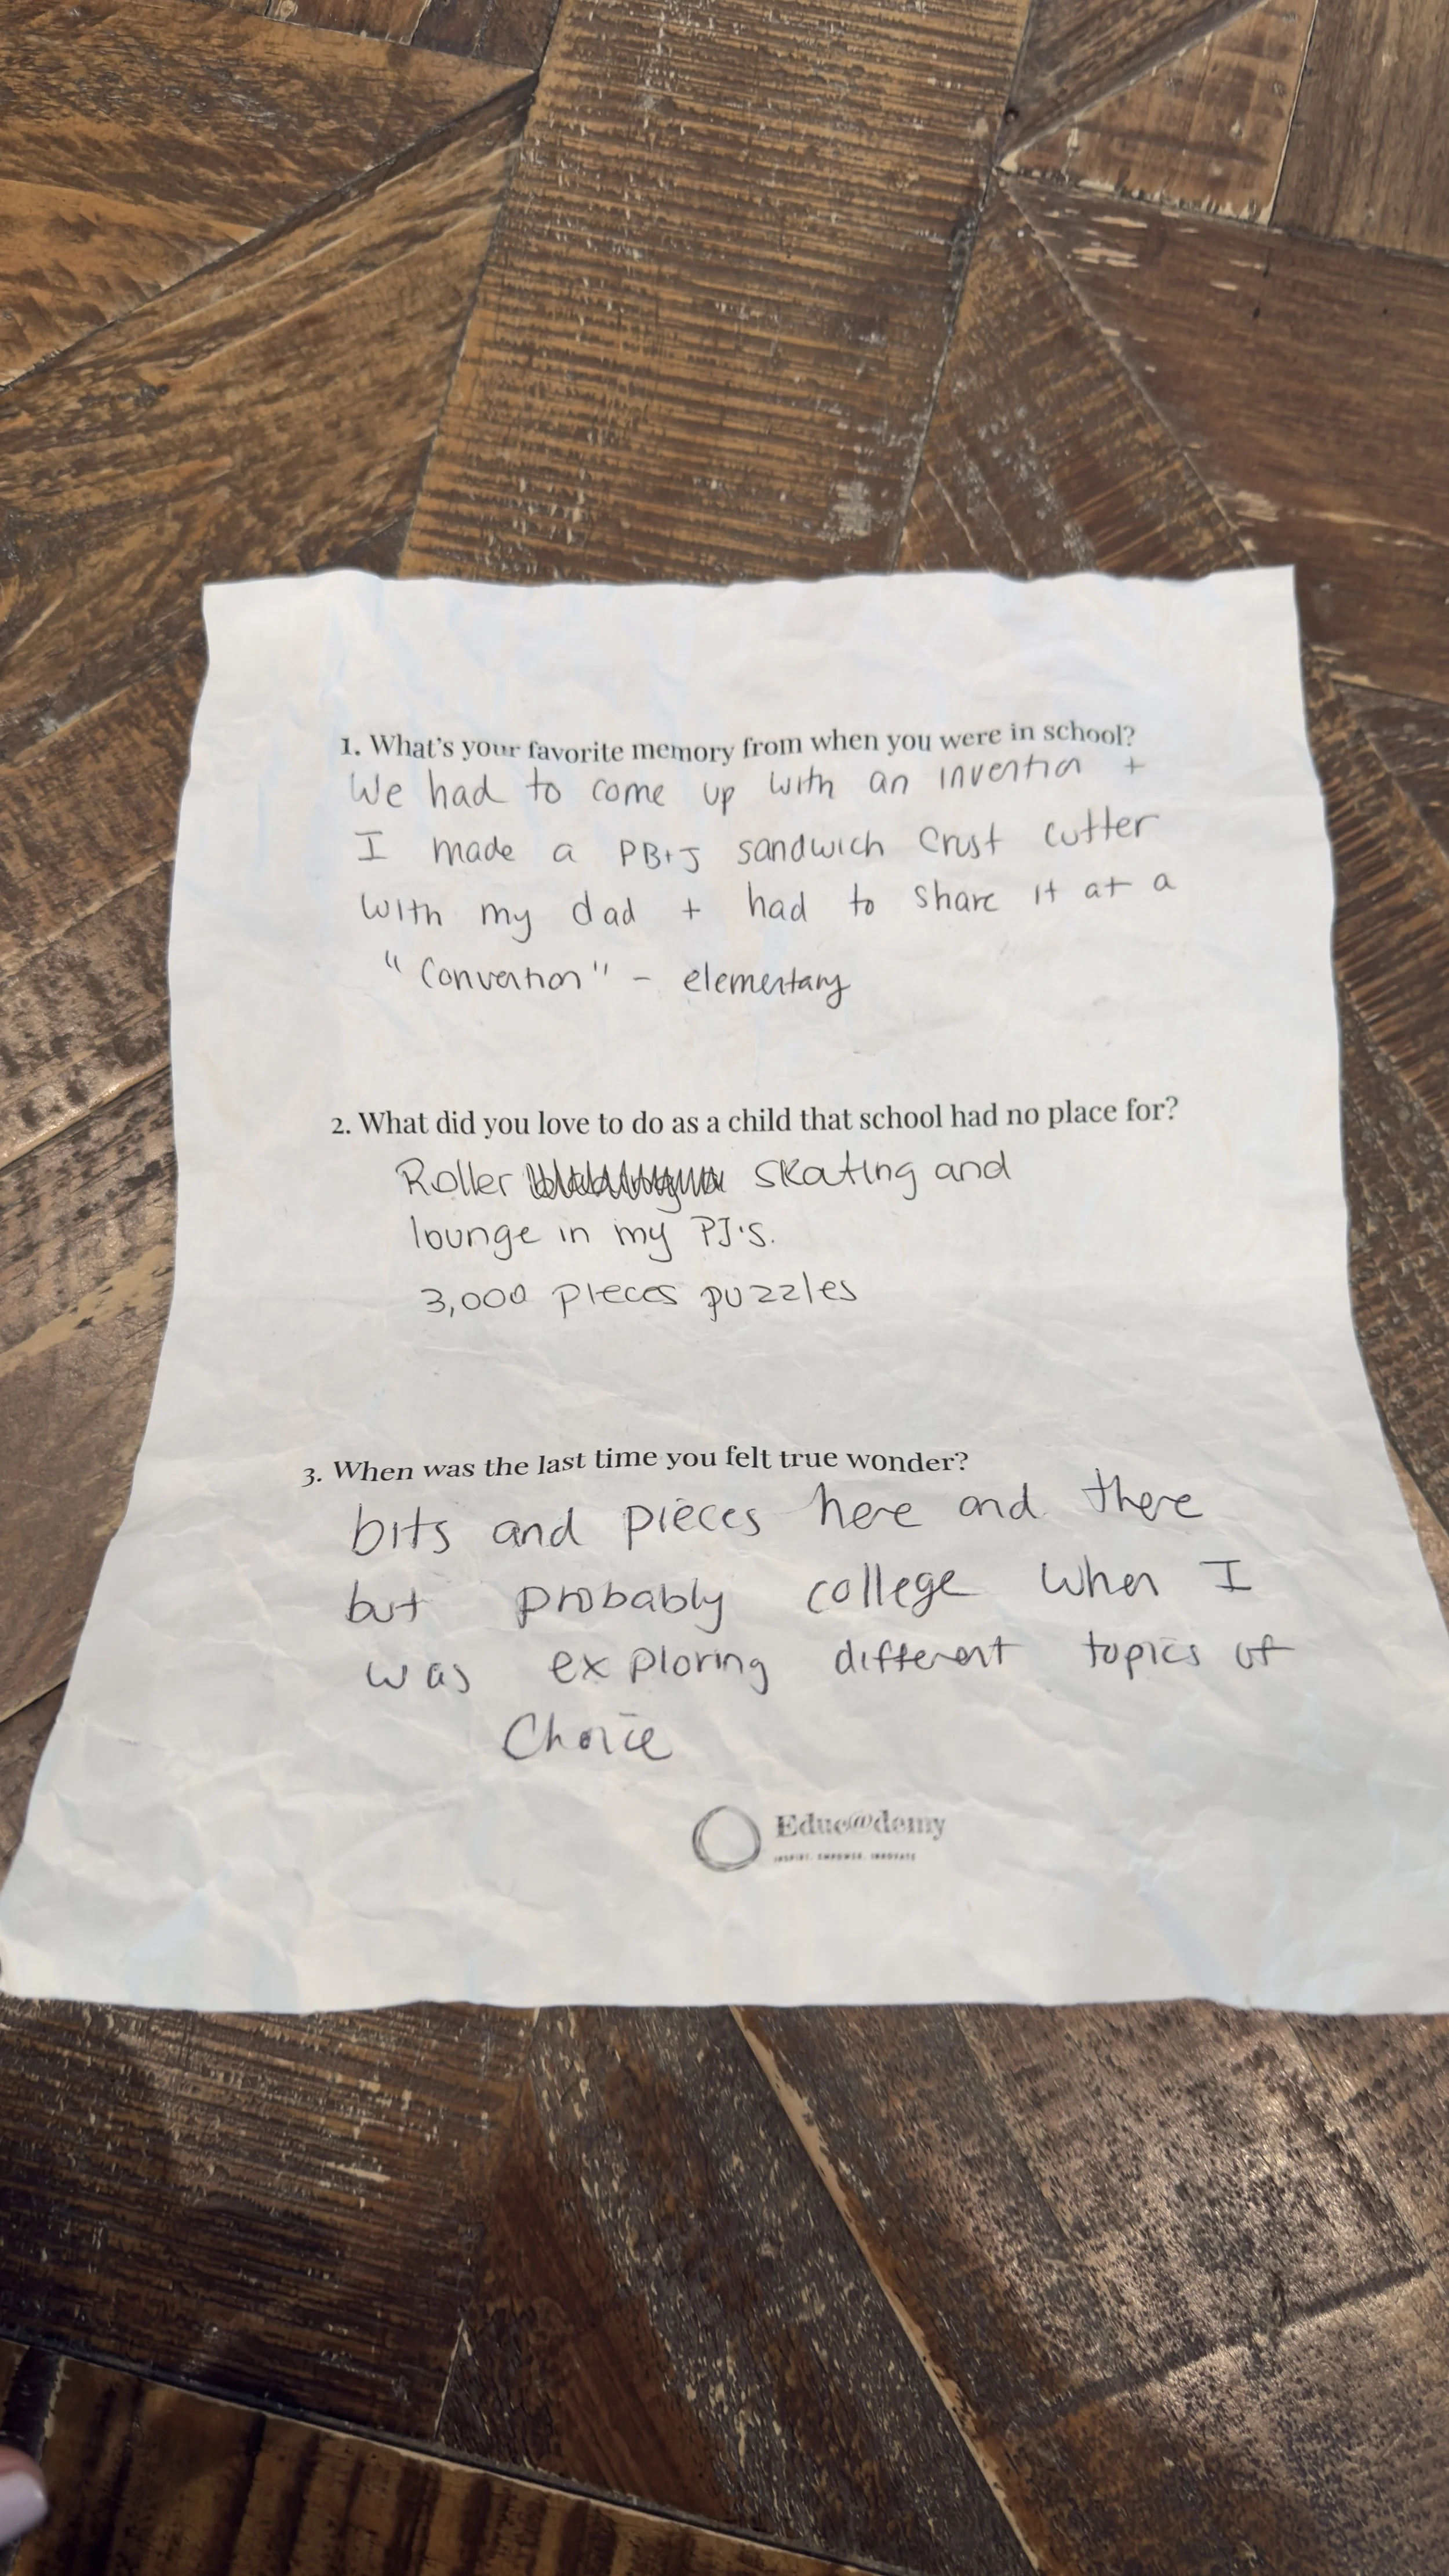 1. What's your favorite memory from when you were in school?
We had to come up with an invention +
I made a PB+J sandwich crust cutter
with my dad + had to share it at a
"Convention" - elementary
2. What did you love to do as a child that school had no place for?
Roller skating and
lounge in my PJ's.
3,000 pieces puzzles
3. When was the last time you felt true wonder?
bits and pieces here and there
but probably college when I
was exploring different topics of
Choice
Educ@demy
INSPIRE. EMPOWER. INNOVATE